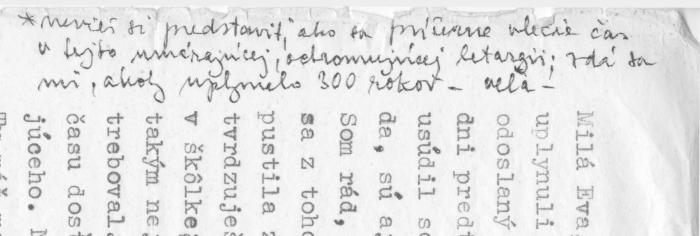 * nevieš si predstaviť, ako sa príšerne vlečie čas
v tejto umŕzajúcej, ochromujúcej letargii; zdá sa
mi, akoby uplynulo 300 rokov — veľa —
Milá Eva
uplynuli
odoslaný
dni pred
usúdil s
da, sú a
Som rád,
sa z toho
pustila z
tvrdzuje
v škôlke
takým ne
trebova
času dos
júceho.